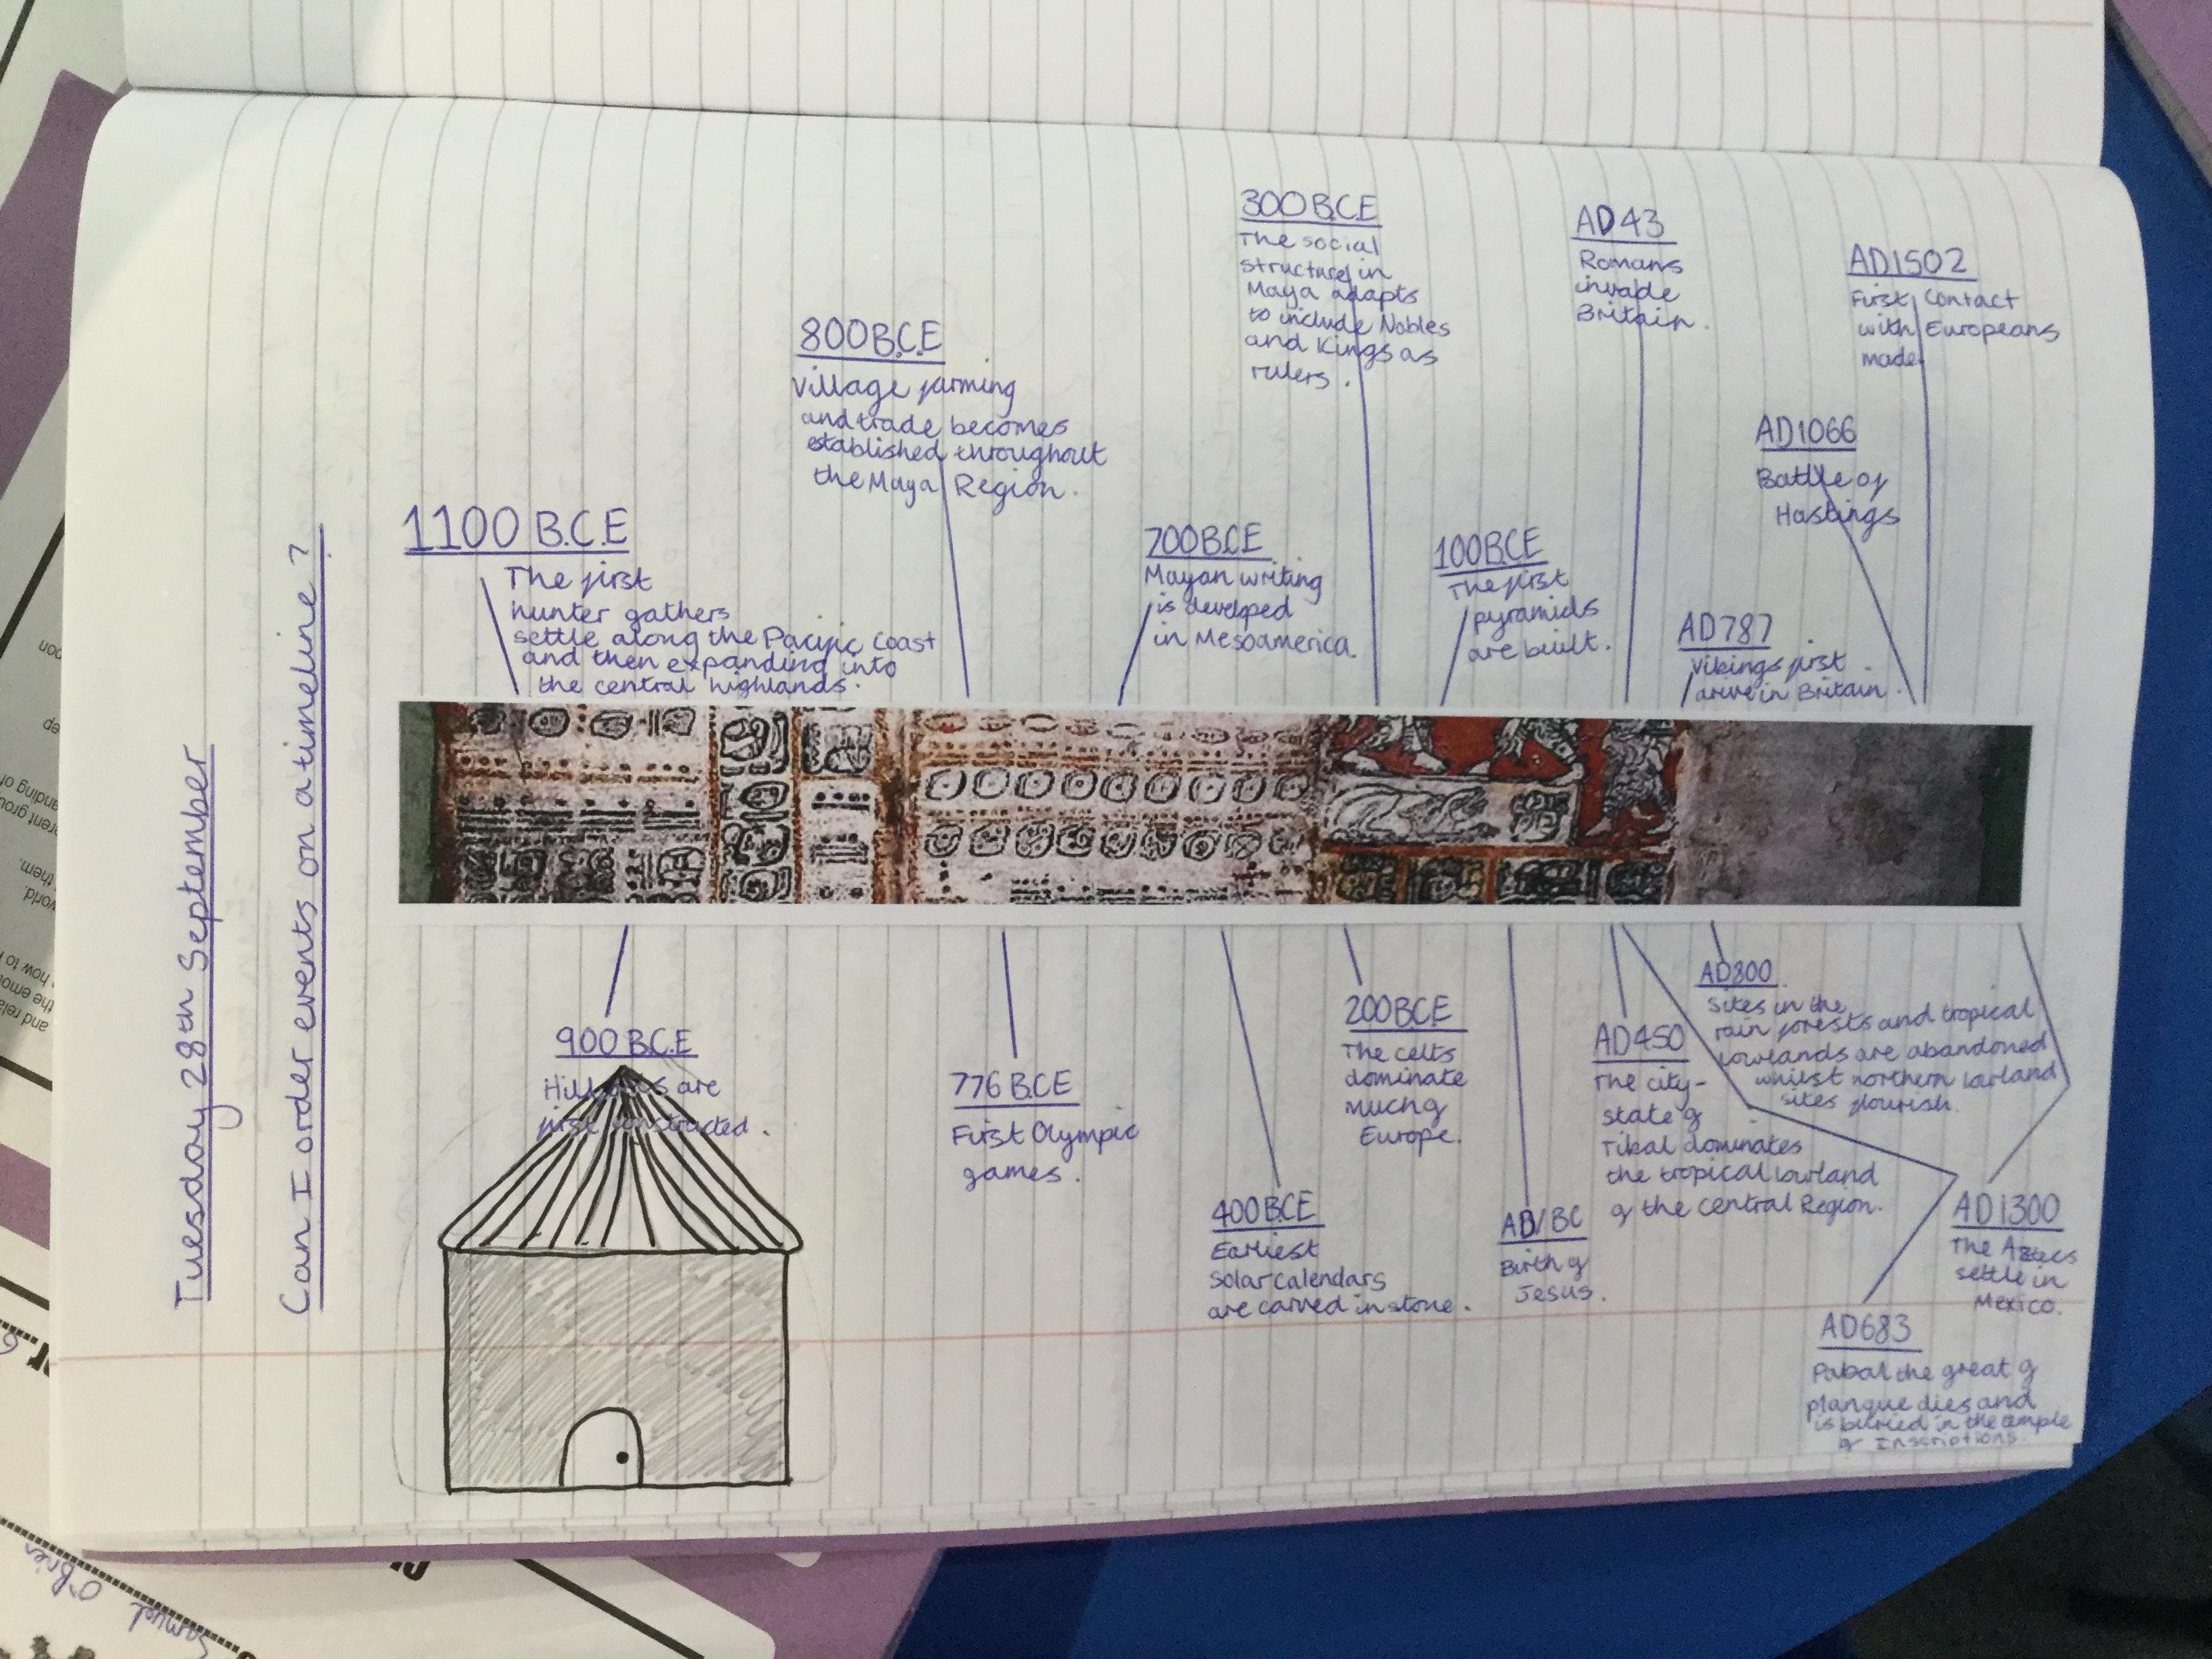 Tuesday 28th September
Can I order events on a timeline?
1100 B.C.E
The first
hunter gathers
settle along the Pacific Coast
and then expanding into
the central highlands.
800 B.C.E
Village farming
and trade becomes
established throughout
the Maya Region.
700 B.C.E
Mayan writing
is developed
in Mesoamerica.
300 B.C.E
The social
structure in
Maya adapts
to include Nobles
and Kings as
rulers.
100 B.C.E
The first
pyramids
are built.
AD43
Romans
invade
Britain.
AD787
Vikings first
arive in Britain.
AD1066
Battle of
Hastings
AD1502
First Contact
with Europeans
made
900 B.C.E
are
first
776 B.C.E
First Olympic
games.
400 B.C.E
Earliest
Solar calendars
are carved in stone.
200 B.C.E
The celts
dominate
much of
Europe.
AD/BC
Birth of
Jesus.
AD450
The city-
state of
Tikal dominates
the tropical lowland
of the central Region.
AD800
Sites in the
rain forests and tropical
lowlands are abandoned
whilst northern lowland
sites flourish.
AD1300
The Aztecs
settle in
Mexico.
AD683
the great of
dies and
is buried in the
of Inscriptions.
how to
them.
world.
anding of
Samuel O'Brien